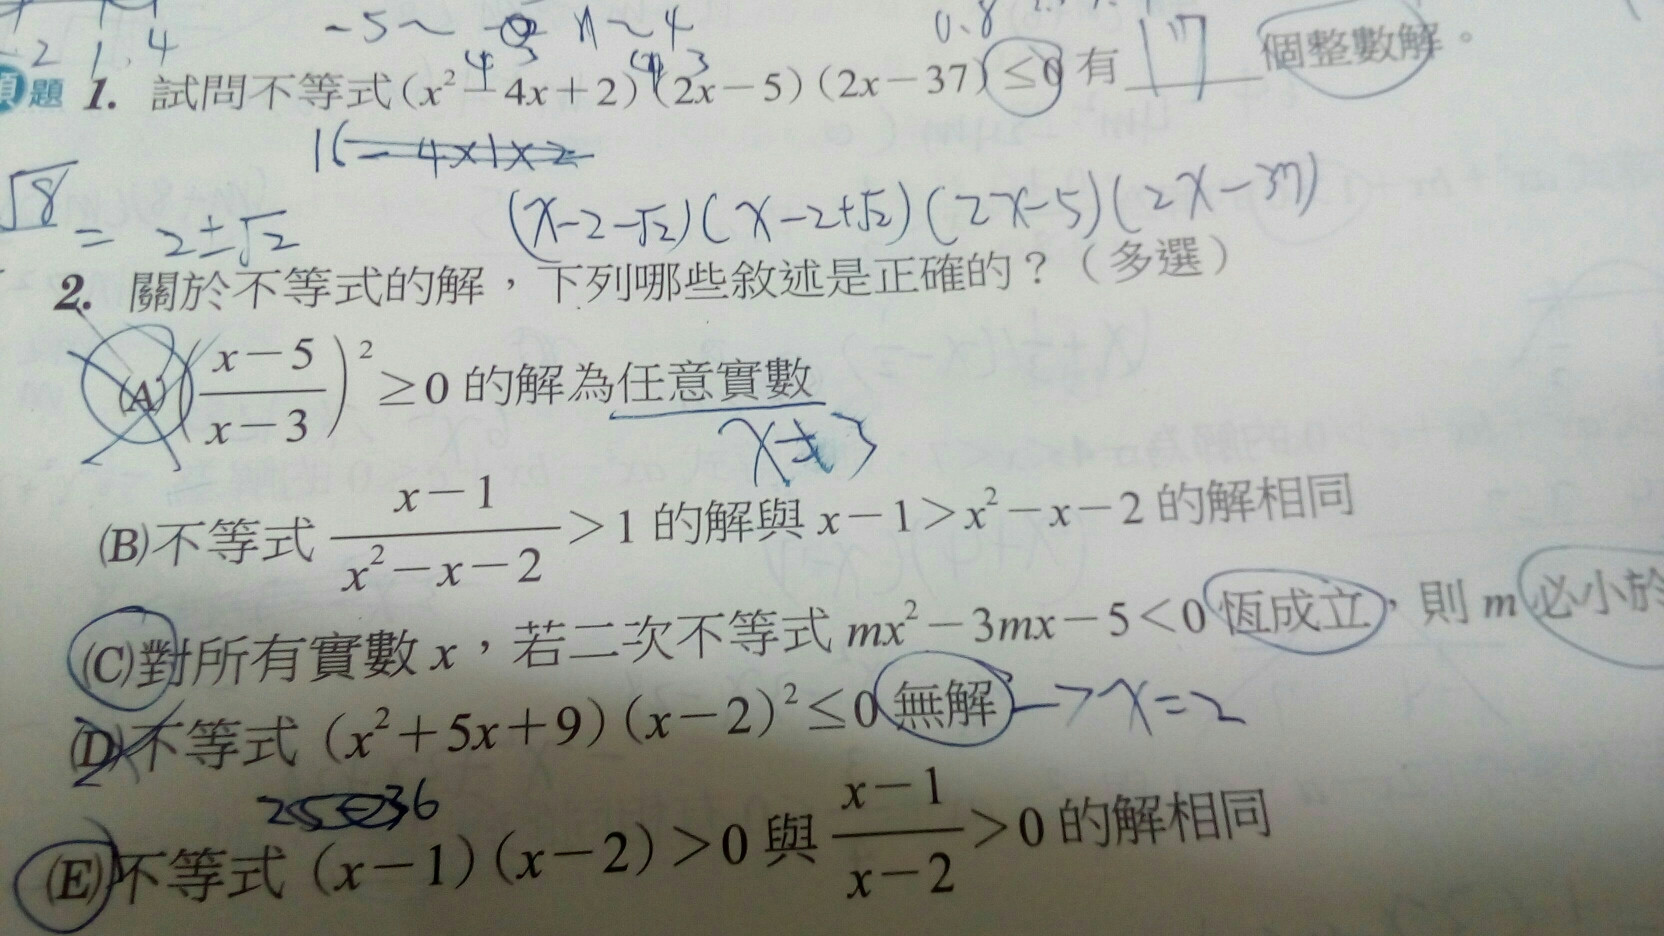 -5~ ~4 0.8
-2 1 4
題 1. 試問不等式(x²-4x+2)(2x-5)(2x-37)≤0有 17 個整數解。
4 3 4 3
16-4×1×2
√8 = 2±√2
(x-2-√2)(x-2+√2)(2x-5)(2x-37)
2. 關於不等式的解，下列哪些敘述是正確的？（多選）
(A) ((x-5)/(x-3))² ≥0 的解為任意實數
x≠3
(B)不等式 (x-1)/(x²-x-2) >1 的解與 x-1>x²-x-2 的解相同
(C)對所有實數 x，若二次不等式 mx²-3mx-5<0 恆成立，則 m 必小於
(D)不等式 (x²+5x+9)(x-2)²≤0 無解 → x=2
25 36
(E)不等式 (x-1)(x-2)>0 與 (x-1)/(x-2) >0 的解相同